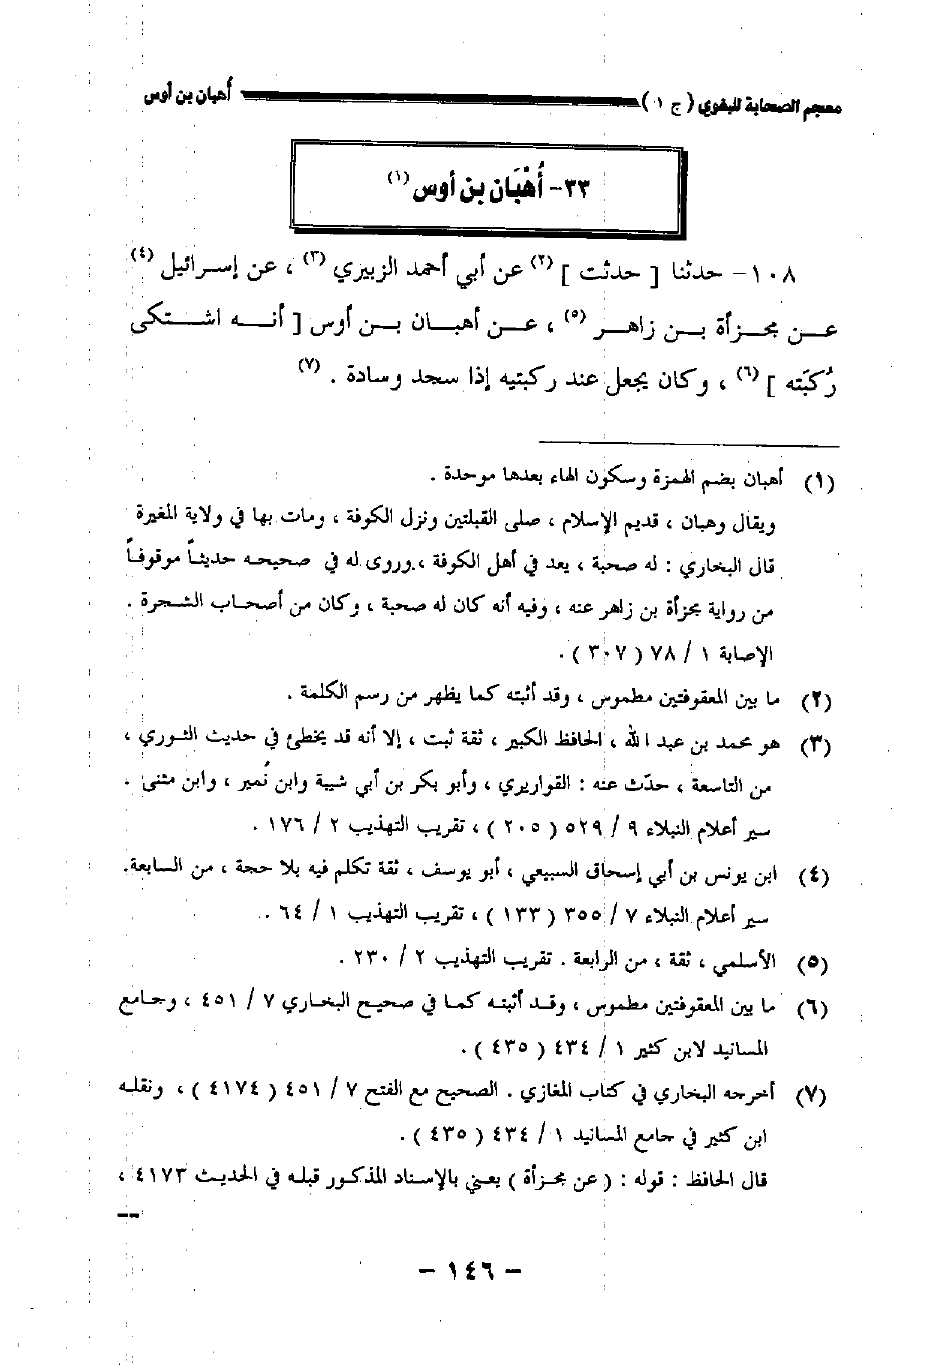 معجم الصحابة للبغوي ( ج ١ ) أهبان بن أوس
٣٣- أُهْبَان بن أوس (١)
١٠٨- حدثنا [ حدثت ] (٢) عن أبي أحمد الزبيري (٣) ، عن إسرائيل (٤)
عن مجزأة بن زاهر (٥) ، عن أهبان بن أوس [ أنه اشتكى
رُكبَته ] (٦) ، وكان يجعل عند ركبتيه إذا سجد وسادة . (٧)
(١) أهبان بضم الهمزة وسكون الهاء بعدها موحدة .
ويقال وهبان ، قديم الإسلام ، صلى القبلتين ونزل الكوفة ، ومات بها في ولاية المغيرة
قال البخاري : له صحبة ، يعد في أهل الكوفة ، وروى له في صحيحه حديثاً موقوفاً
من رواية مجزأة بن زاهر عنه ، وفيه أنه كان له صحبة ، وكان من أصحاب الشجرة .
الإصابة ١ / ٧٨ ( ٣٠٧ ) .
(٢) ما بين المعقوفتين مطموس ، وقد أثبته كما يظهر من رسم الكلمة .
(٣) هو محمد بن عبد الله ، الحافظ الكبير ، ثقة ثبت ، إلا أنه قد يخطئ في حديث الثوري ،
من التاسعة ، حدّث عنه : القواريري ، وأبو بكر بن أبي شيبة وابن نُمير ، وابن مثنى .
سير أعلام النبلاء ٩ / ٥٢٩ ( ٢٠٥ ) ، تقريب التهذيب ٢ / ١٧٦ .
(٤) ابن يونس بن أبي إسحاق السبيعي ، أبو يوسف ، ثقة تكلم فيه بلا حجة ، من السابعة.
سير أعلام النبلاء ٧ / ٣٥٥ ( ١٣٣ ) ، تقريب التهذيب ١ / ٦٤ .
(٥) الأسلمي ، ثقة ، من الرابعة . تقريب التهذيب ٢ / ٢٣٠ .
(٦) ما بين المعقوفتين مطموس ، وقد أثبته كما في صحيح البخاري ٧ / ٤٥١ ، وجامع
المسانيد لابن كثير ١ / ٤٣٤ ( ٤٣٥ ) .
(٧) أخرجه البخاري في كتاب المغازي . الصحيح مع الفتح ٧ / ٤٥١ ( ٤١٧٤ ) ، ونقله
ابن كثير في جامع المسانيد ١ / ٤٣٤ ( ٤٣٥ ) .
قال الحافظ : قوله : ( عن مجزأة ) يعني بالإسناد المذكور قبله في الحديث ٤١٧٣ ،
--
- ١٤٦ -